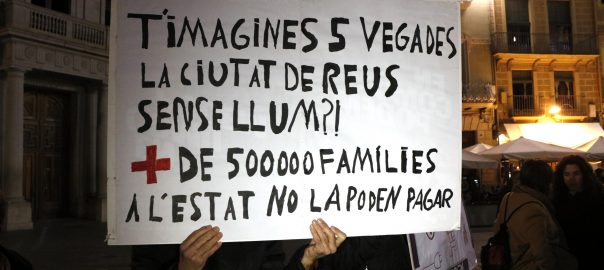 T'IMAGINES 5 VEGADES
LA CIUTAT DE REUS
SENSE LLUM?!
+ DE 500000 FAMÍLIES
A L'ESTAT NO LA PODEN PAGAR